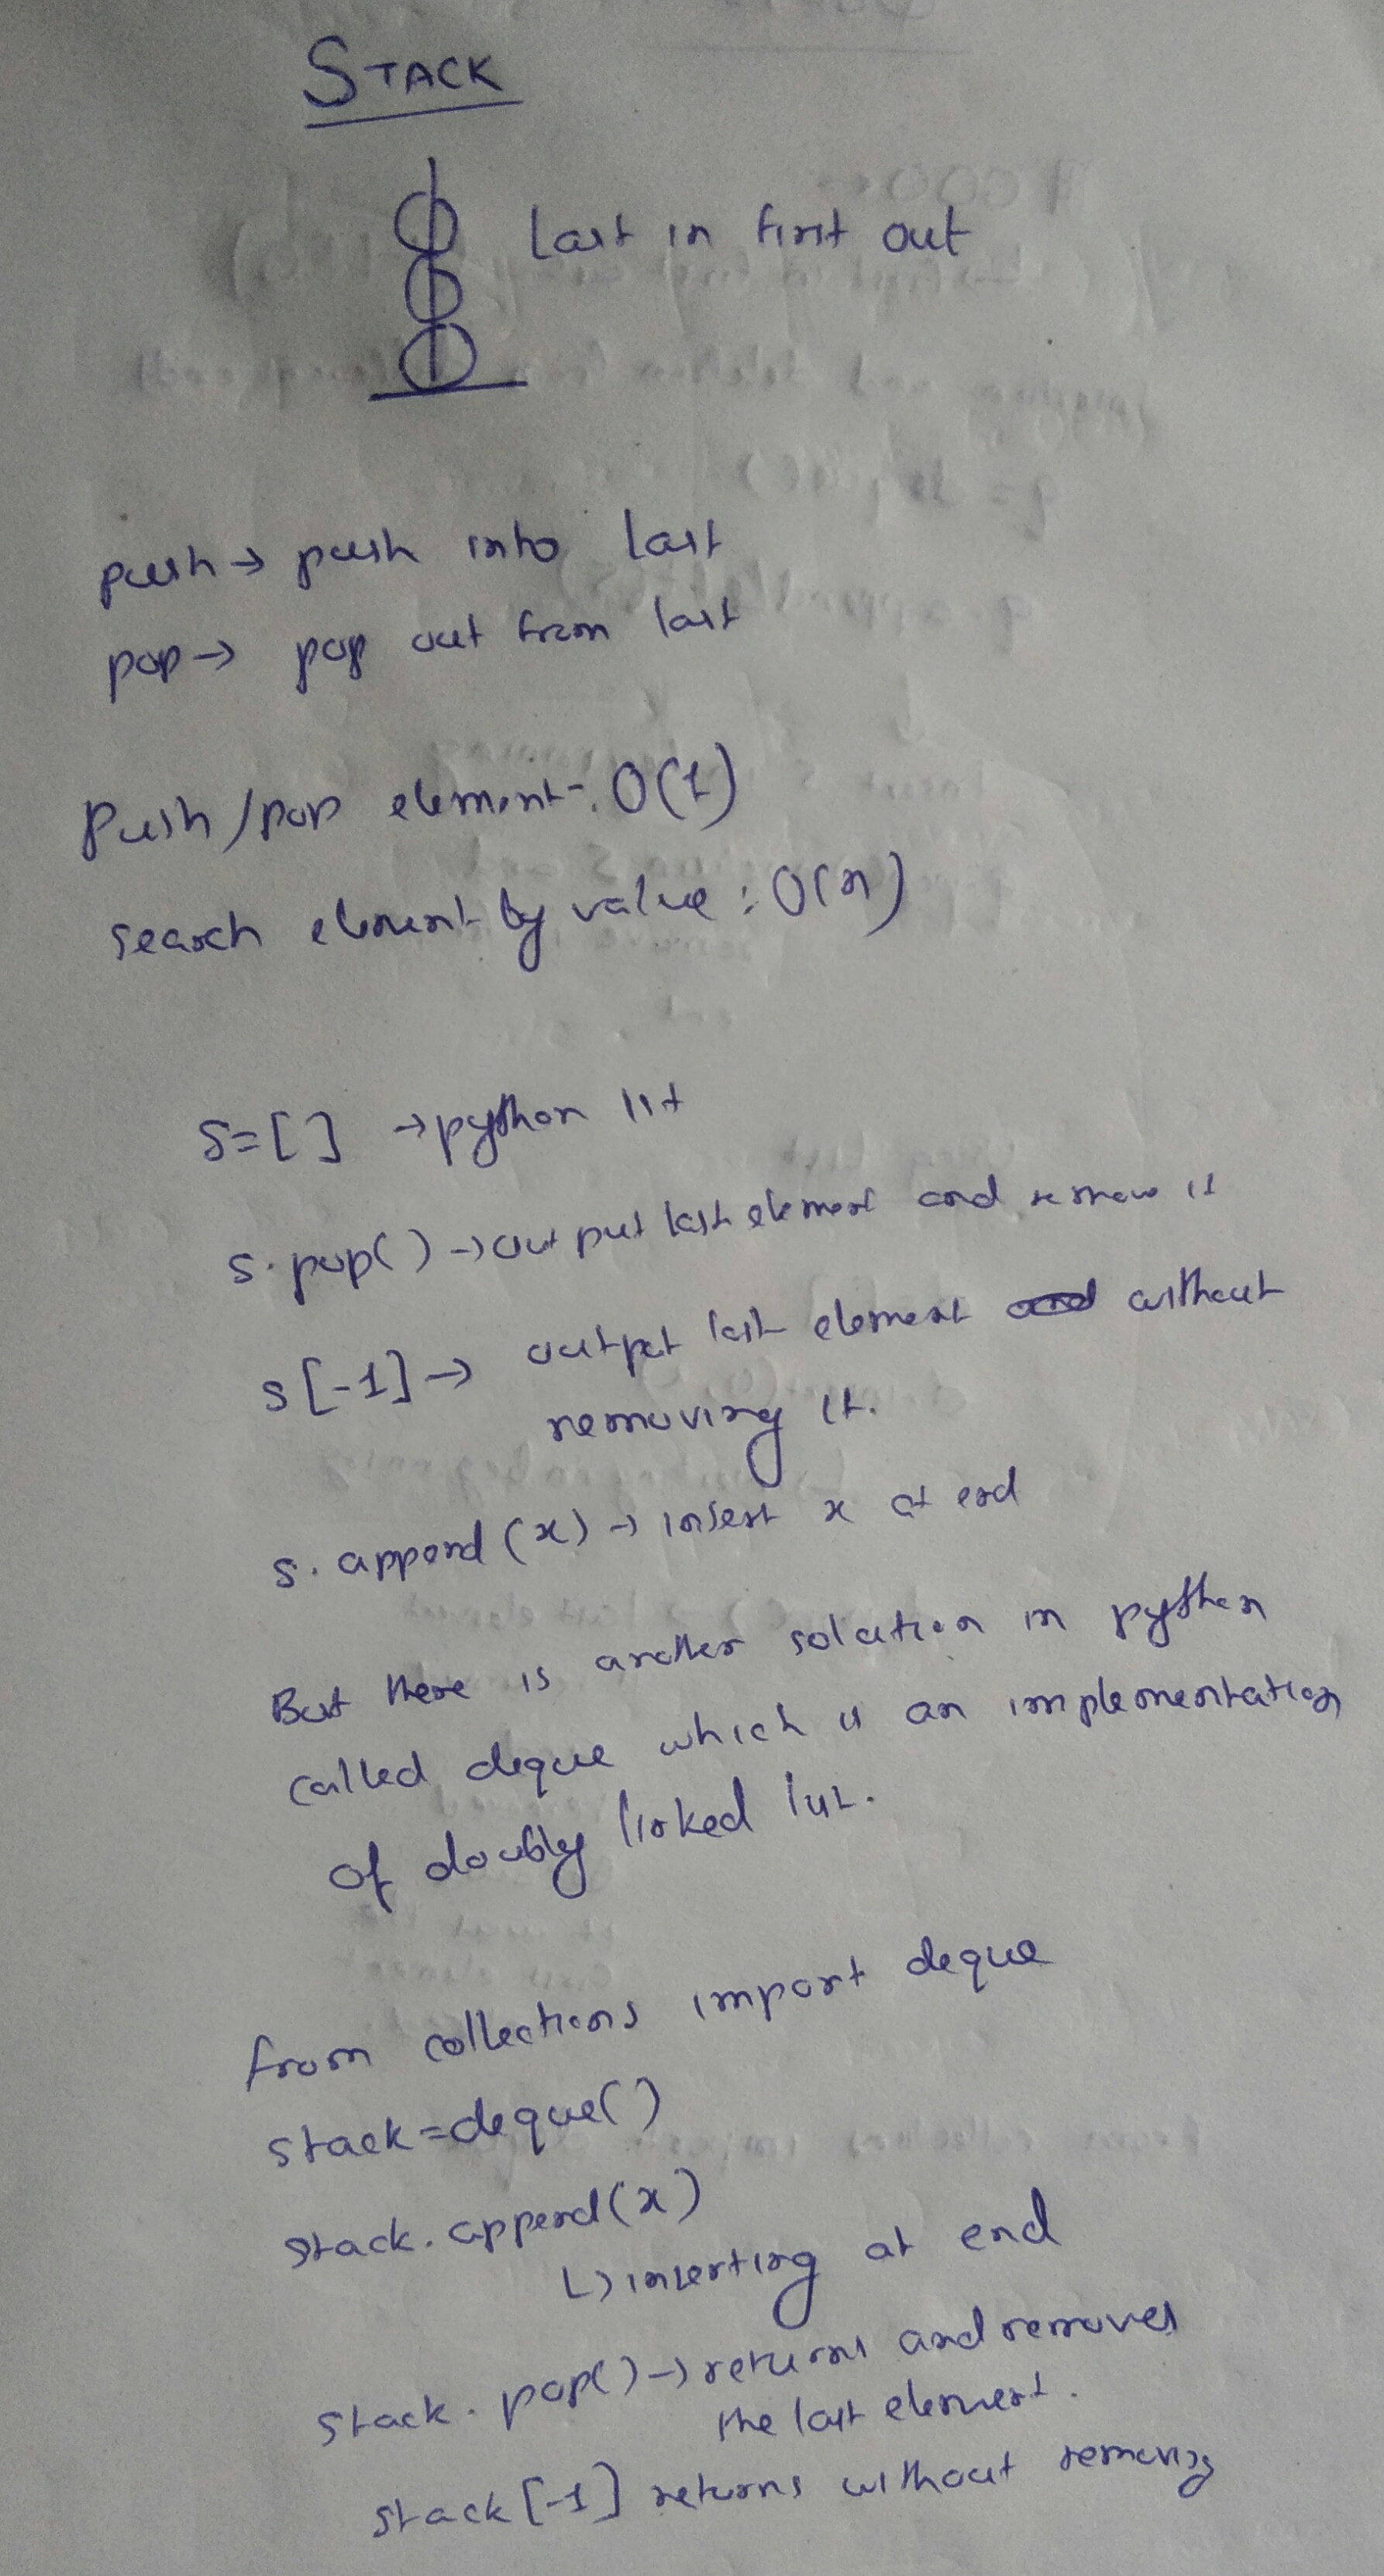 STACK
last in first out
push → push into last
pop → pop out from last
Push/pop element-: O(1)
search element by value : O(n)
s=[ ] → python list
s.pop() → output last element and remove it
s[-1] → output last element without
removing it.
s.append(x) → insert x at end
But there is another solution in python
called deque which is an implementation
of doubly linked list.
from collections import deque
stack=deque()
stack.append(x)
↳ inserting at end
stack.pop() → returns and removes
the last element.
stack[-1] returns without removing